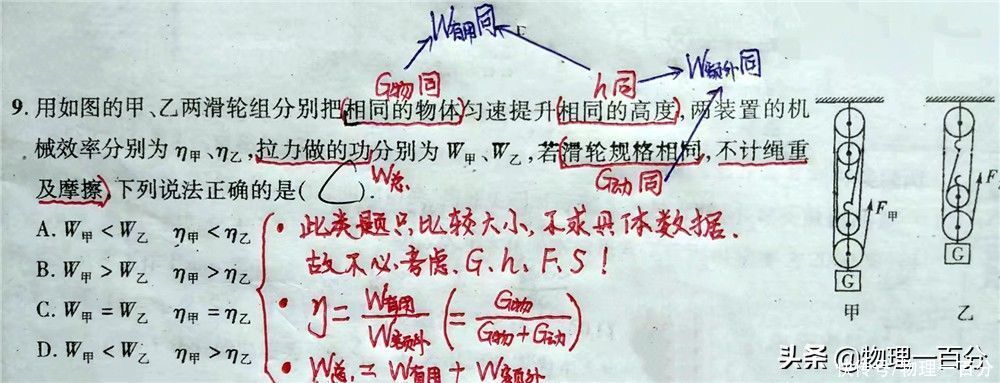 W有用同
G物同
h同
W额外同
9.用如图的甲、乙两滑轮组分别把相同的物体匀速提升相同的高度,两装置的机
械效率分别为η甲、η乙,拉力做的功分别为W甲、W乙,若滑轮规格相同,不计绳重
W总
G动同
及摩擦,下列说法正确的是( ).
A. W甲<W乙 η甲<η乙
B. W甲>W乙 η甲>η乙
C. W甲=W乙 η甲=η乙
D. W甲<W乙 η甲>η乙
• 此类题只比较大小,不求具体数据.
故不必考虑.G.h.F.S!
• η=W有用/W额外(=G物/G物+G动)
• W总=W有用+W额外
F甲
G
甲
F
G
乙
头条@物理一百分